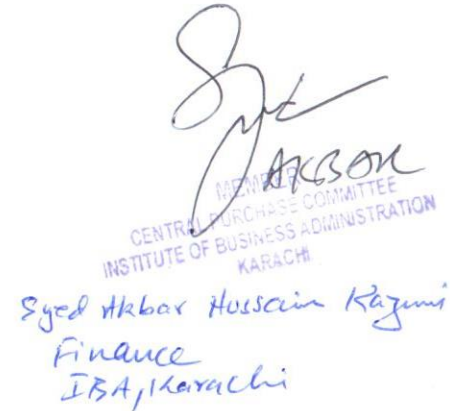 AKBAR
MEMBER
CENTRAL PURCHASE COMMITTEE
INSTITUTE OF BUSINESS ADMINISTRATION
KARACHI
Syed Akbar Hussain Kazmi
Finance
IBA, Karachi